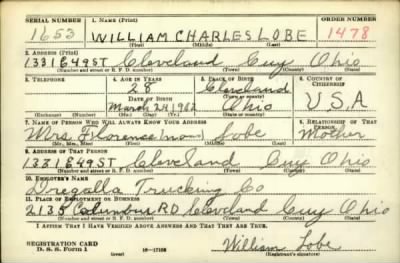 SERIAL NUMBER 1. NAME (Print) ORDER NUMBER
1653 WILLIAM CHARLES LOBE 1478
(First) (Middle) (Last)
2. ADDRESS (Print)
1331 E 49 ST Cleveland Cuy Ohio
(Number and street or R. F. D. number) (Town) (County) (State)
3. TELEPHONE 4. AGE IN YEARS 5. PLACE OF BIRTH 6. COUNTRY OF CITIZENSHIP
28 Cleveland
(Town or county)
DATE OF BIRTH
March 24 1912 Ohio U.S.A
(Exchange) (Number) (Mo.) (Day) (Yr.) (State or country)
7. NAME OF PERSON WHO WILL ALWAYS KNOW YOUR ADDRESS 8. RELATIONSHIP OF THAT PERSON
Mrs Florence (none) Lobe Mother
(Mr., Mrs., Miss) (First) (Middle) (Last)
9. ADDRESS OF THAT PERSON
1331 E 49 ST Cleveland Cuy Ohio
(Number and street or R. F. D. number) (Town) (County) (State)
10. EMPLOYER'S NAME
Tregalla Trucking Co
11. PLACE OF EMPLOYMENT OR BUSINESS
2135 Columbus RD Cleveland Cuy Ohio
(Number and street or R. F. D. number) (Town) (County) (State)
I AFFIRM THAT I HAVE VERIFIED ABOVE ANSWERS AND THAT THEY ARE TRUE.
REGISTRATION CARD
D. S. S. Form 1 16-17105 William Lobe
(Registrant's signature)